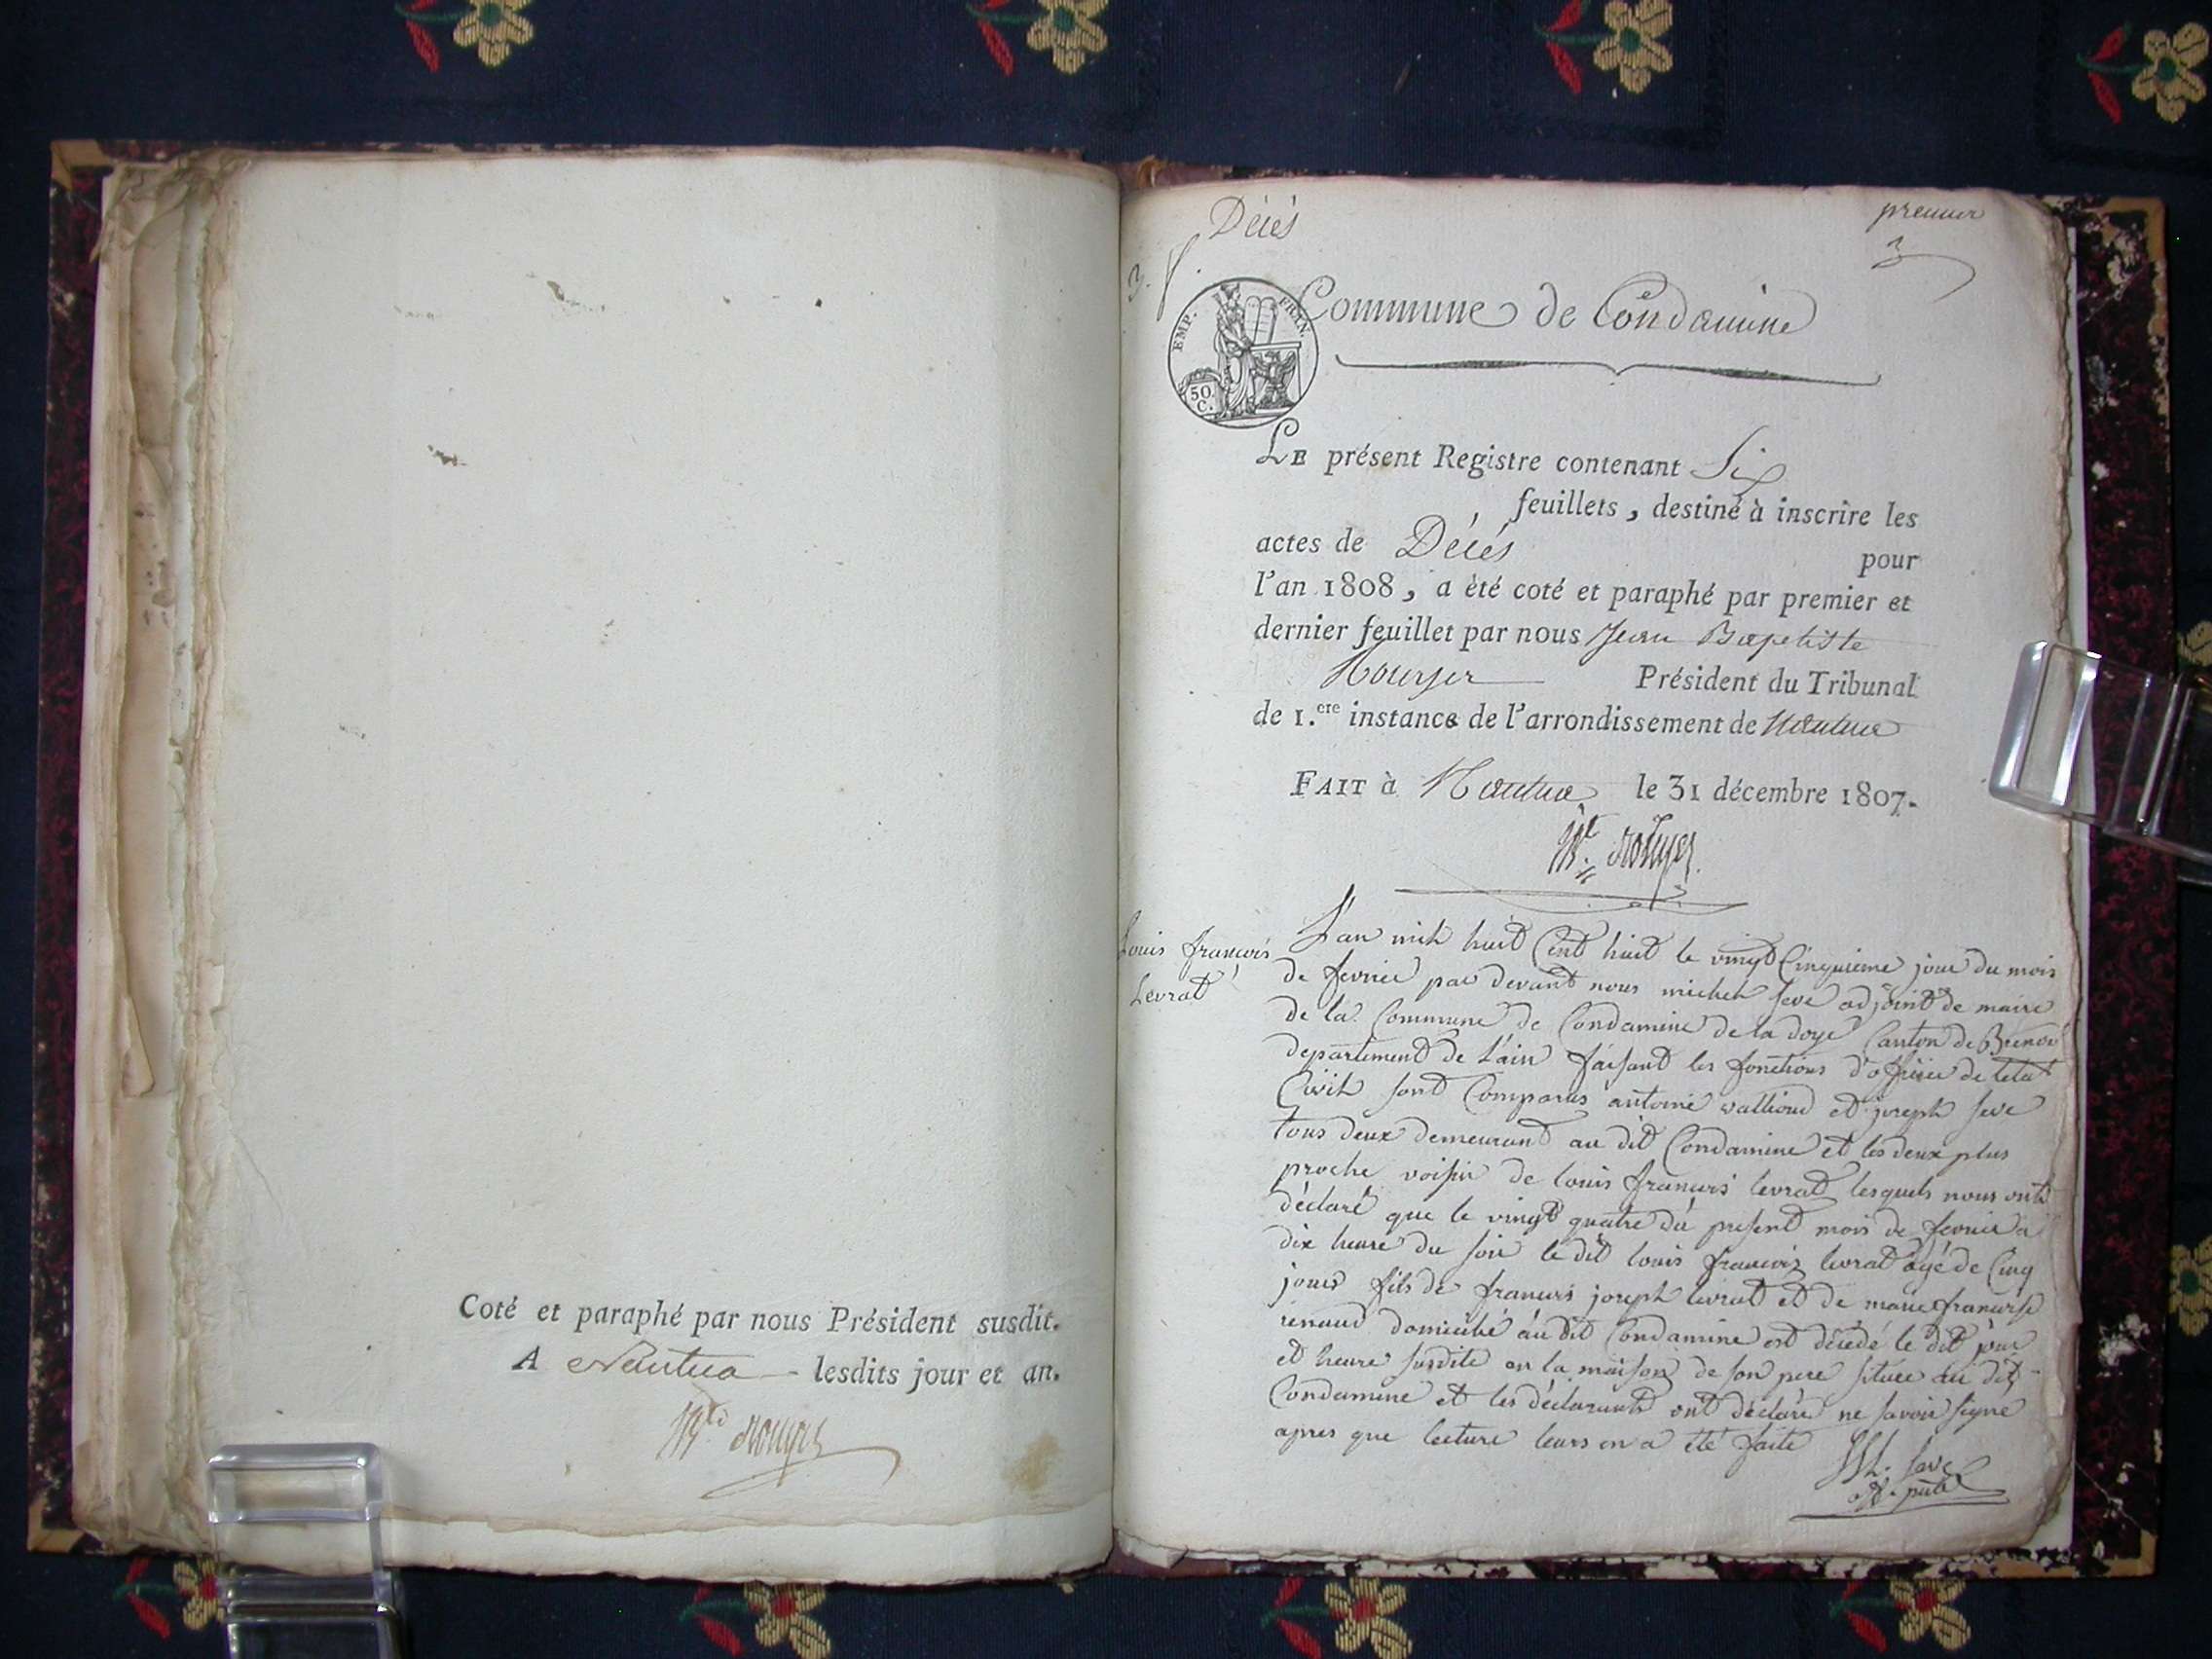 Coté et paraphé par nous Président susdit.
A Nantua lesdits jour et an.
Décés
premier
3
EMP. FRAN.
50 C.
Commune de Condamine
LE présent Registre contenant Six
feuillets, destiné à inscrire les
actes de Décés pour
l'an 1808, a èté coté et paraphé par premier et
dernier feuillet par nous Jean Baptiste
Rouyer Président du Tribunal
de 1.ere instance de l'arrondissement de Nantua
FAIT à Nantua le 31 décembre 1807.
Louis françois
Levrat
L'an mil huit Cent huit le vingt Cinquieme jour du mois
de fevrier par devant nous michel seve adjoint de maire
de la Commune de Condamine de la doye Canton de Brenod
departement de L'ain faisant les fonctions d'officier de letat
Civil sont Comparus antoine vallioud et joseph seve
tous deux demeurant au dit Condamine et les deux plus
proche voisin de louis françois levrat lesquels nous onts
déclaré que le vingt quatre du present mois de fevrier a
dix heure du soir le dit louis françois levrat âgé de Cinq
jours fils de françois joseph levrat et de marie françoise
renaud domicilié au dit Condamine est décédé le dit jour
et heure susdite en la maison de son pere située au dit
Condamine et les déclarants ont déclaré ne savoir signé
apres que lecture leurs en a été faite
seve